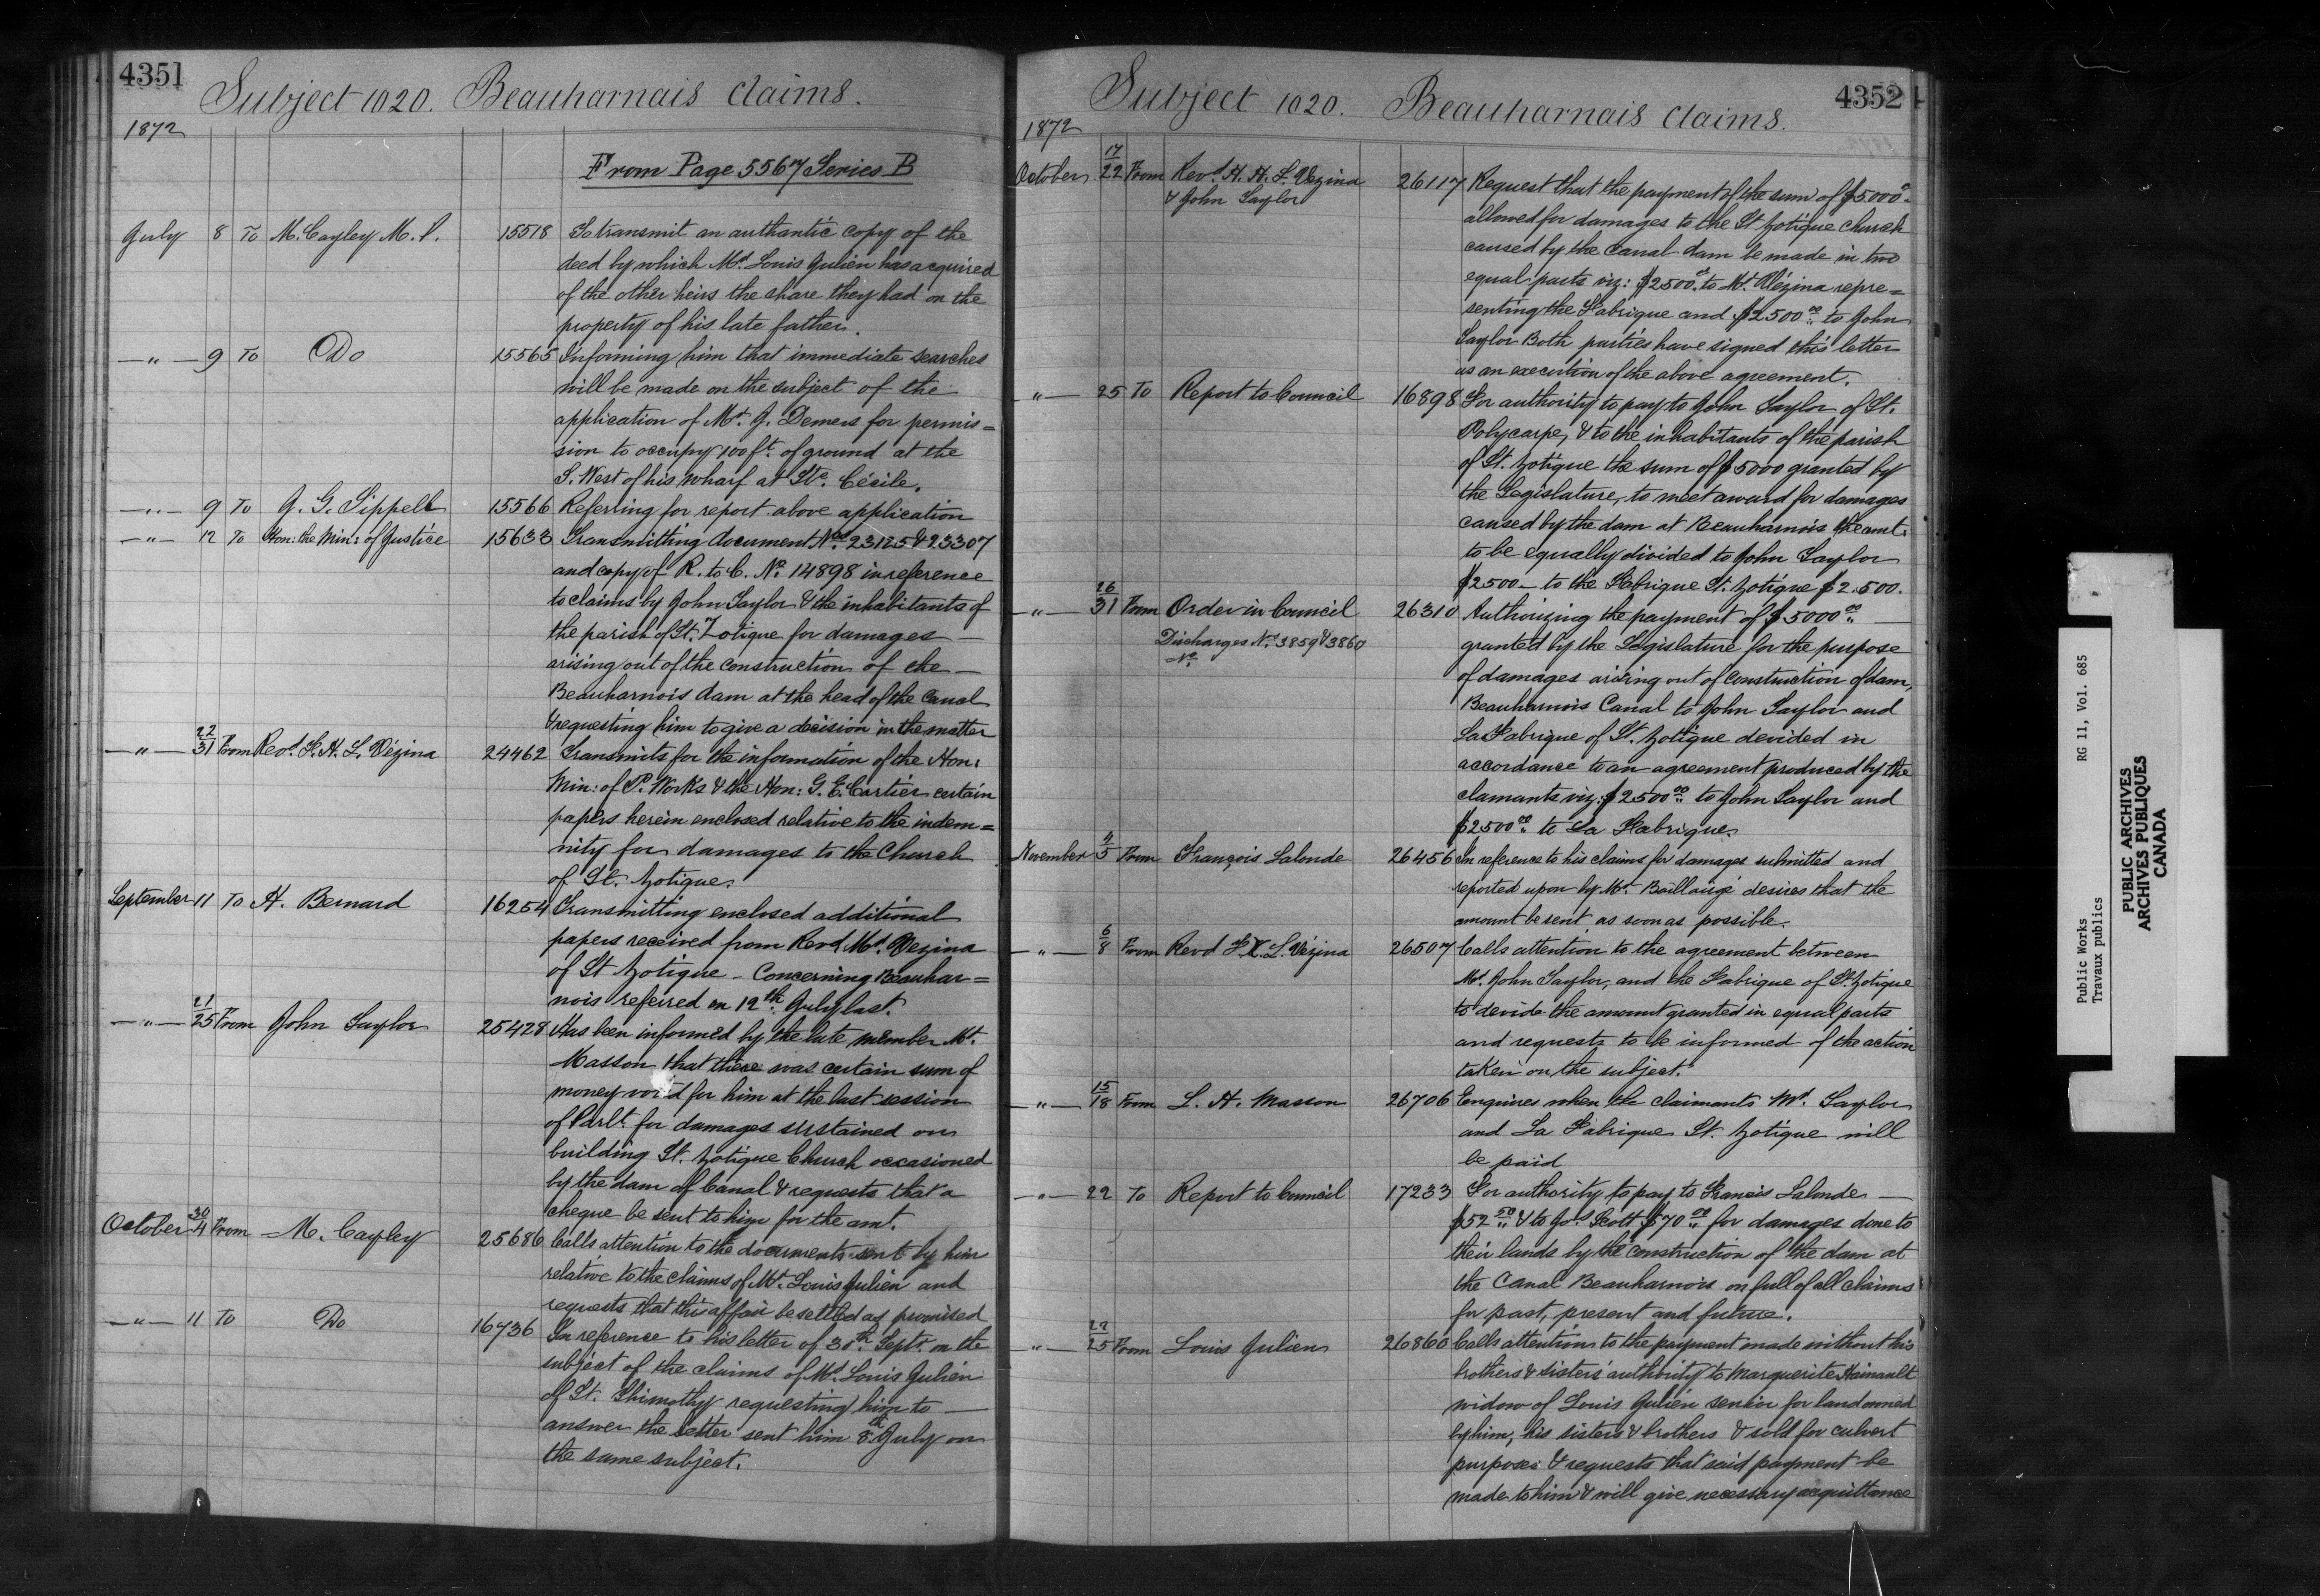 4351
Subject 1020. Beauharnais Claims.
1872
From Page 5567 Series B
July 8 To M. Cayley M.P. 15518 To transmit an authantic copy of the
deed by which Mr. Louis Julien has acquired
of the other heirs the share they had on the
property of his late father.
—"— 9 To Do 15565 Informing him that immediate searches
will be made on the subject of the
application of Mr. J. Demers for permis=
sion to occupy 100 ft. of ground at the
S. West of his wharf at Ste. Cécile.
—"— 9 To J. G. Sippell 15566 Referring for report above application
—"— 12 To Hon: the Min: of Justice 15633 Transmitting document Nos. 23125 & 23307
and copy of R. to C. No. 14898 in reference
to claims by John Taylor & the inhabitants of
the parish of St. Zotique for damages —
arising out of the construction of the —
Beauharnois dam at the head of the Canal
& requesting him to give a decision in the matter
—"— 22/31 From Revd. F. H. L. Vézina 24462 Transmits for the information of the Hon:
Min: of P. Works & the Hon: G. E. Cartier certain
papers herein enclosed relative to the indem=
nity for damages to the Church
of St. Zotique.
September 11 To H. Bernard 16254 Transmitting enclosed additional
papers received from Revd. Mr. Vezina
of St Zotique - Concerning Beauhar=
nois referred on 12th July last.
—"— 21/25 From John Taylor 25428 Has been informed by the late member Mr.
Masson that there was certain sum of
money for him at the last session
of Parlt. for damages sustained on
building St. Zotique Church occasioned
by the dam of Canal & requests that a
cheque be sent to him for the amt.
October 30/4 From M. Cayley 25686 Calls attention to the documents sent by him
relative to the claims of Mr. Louis Julien and
requests that this affair be settled as promised
—"— 11 To Do 16736 In reference to his letter of 30th Septr. on the
subject of the claims of Mr. Louis Julien
of St. Thimothy requesting him to —
answer the letter sent him 8th July on
the same subject.
4352
Subject 1020. Beauharnais Claims.
1872
October 17/22 From Revd. H. H. L. Vezina 26117 Request that the payment of the sum of $5000
& John Taylor
allowed for damages to the St Zotique Church
caused by the Canal dam be made in two
equal parts viz: $2500.00 to Mr. Vézina repre=
senting the Fabrique and $2500.00 to John
Taylor Both parties have signed this letter
as an execution of the above agreement.
—"— 25 To Report to Council 16898 For authority to pay to John Taylor of St.
Polycarpe, & to the inhabitants of the parish
of St. Zotique the sum of $5000 granted by
the Legislature, to meet award for damages
caused by the dam at Beauharnois the amt.
to be equally divided to John Taylor
$2500 — to the Fabrique St. Zotique $2.500.
—"— 26/31 From Order in Council 26310 Authorizing the payment of $5000.00 —
Discharges Nos. 3859 & 3860
No.
granted by the Legislature for the purpose
of damages arising out of construction of dam,
Beauharnois Canal to John Taylor and
La Fabrique of St. Zotique devided in
accordance to an agreement produced by the
clamants viz: $2500.00 to John Taylor and
$2500.00 to La Fabrique.
November 4/5 From François Lalonde 26456 In reference to his claims for damages submitted and
reported upon by Mr. Baillairgé desires that the
amount be sent as soon as possible.
—"— 6/8 From Revd F. X. L. Vézina 26507 Calls attention to the agreement between
Mr. John Taylor, and the Fabrique of St. Zotique
to devide the amount granted in equal parts
and requests to be informed of the action
taken on the subject.
—"— 15/18 From L. H. Masson 26706 Enquires when the claimants Mr. Taylor
and La Fabrique St. Zotique will
be paid
—"— 22 To Report to Council 17233 For authority to pay to Francis Lalonde —
$52.50 & to Jos. Scott $70.00 for damages done to
their lands by the construction of the dam at
the Canal Beauharnois on full of all claims
for past, present and future.
—"— 22/25 From Louis Julien 26860 Calls attention to the payment made without his
brothers & sisters' authority to Marguerite Hainault
widow of Louis Julien senior for land owned
by him, his sisters & brothers & sold for culvert
purposes & requests that said payment be
made to him & will give necessary acquittance
Public Works RG 11, Vol. 685
Travaux publics
PUBLIC ARCHIVES
ARCHIVES PUBLIQUES
CANADA